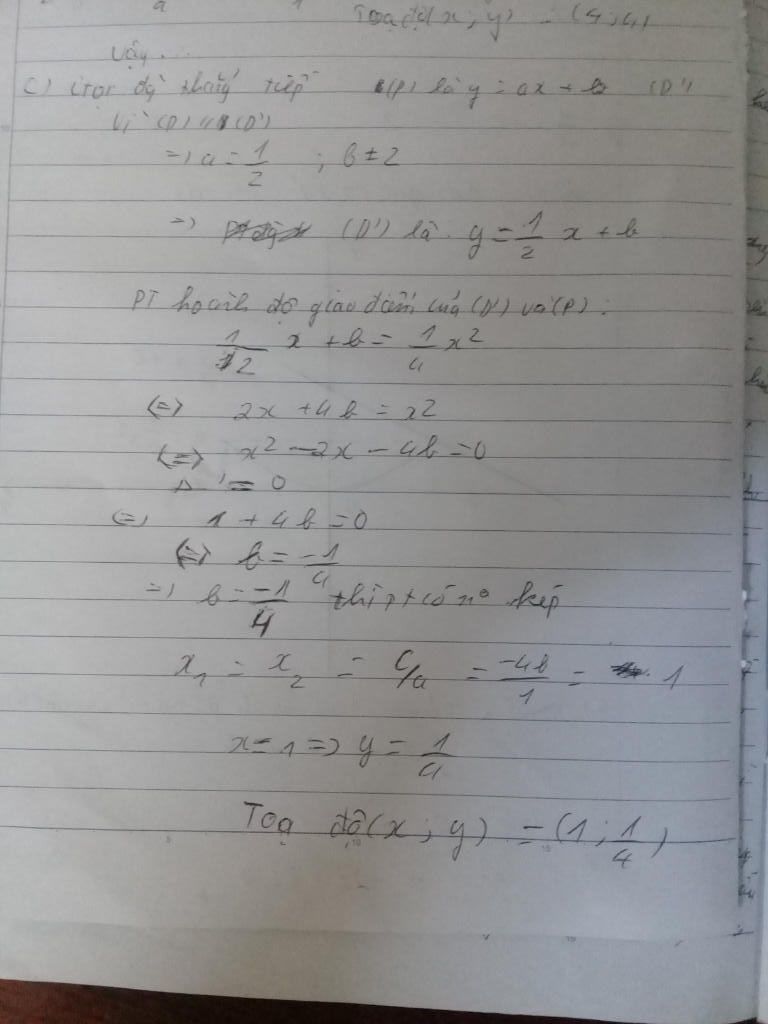 Toạ độ (x ; y) = (4 ; 4)
Vậy...
c) tiếp (P) là y = ax + b (D')
Vì (D) // (D')
=> a = 1/2 ; b ≠ 2
=> (D') là y = 1/2 x + b
PT hoành độ giao điểm của (D') và (P) :
1/2 x + b = 1/4 x²
<=> 2x + 4b = x²
<=> x² - 2x - 4b = 0
Δ' = 0
<=> 1 + 4b = 0
<=> b = -1/4
=> b = -1/4 thì pt có n° kép
x₁ = x₂ = c/a = -4b/1 = 1
x = 1 => y = 1/4
Toạ độ (x ; y) = (1 ; 1/4)